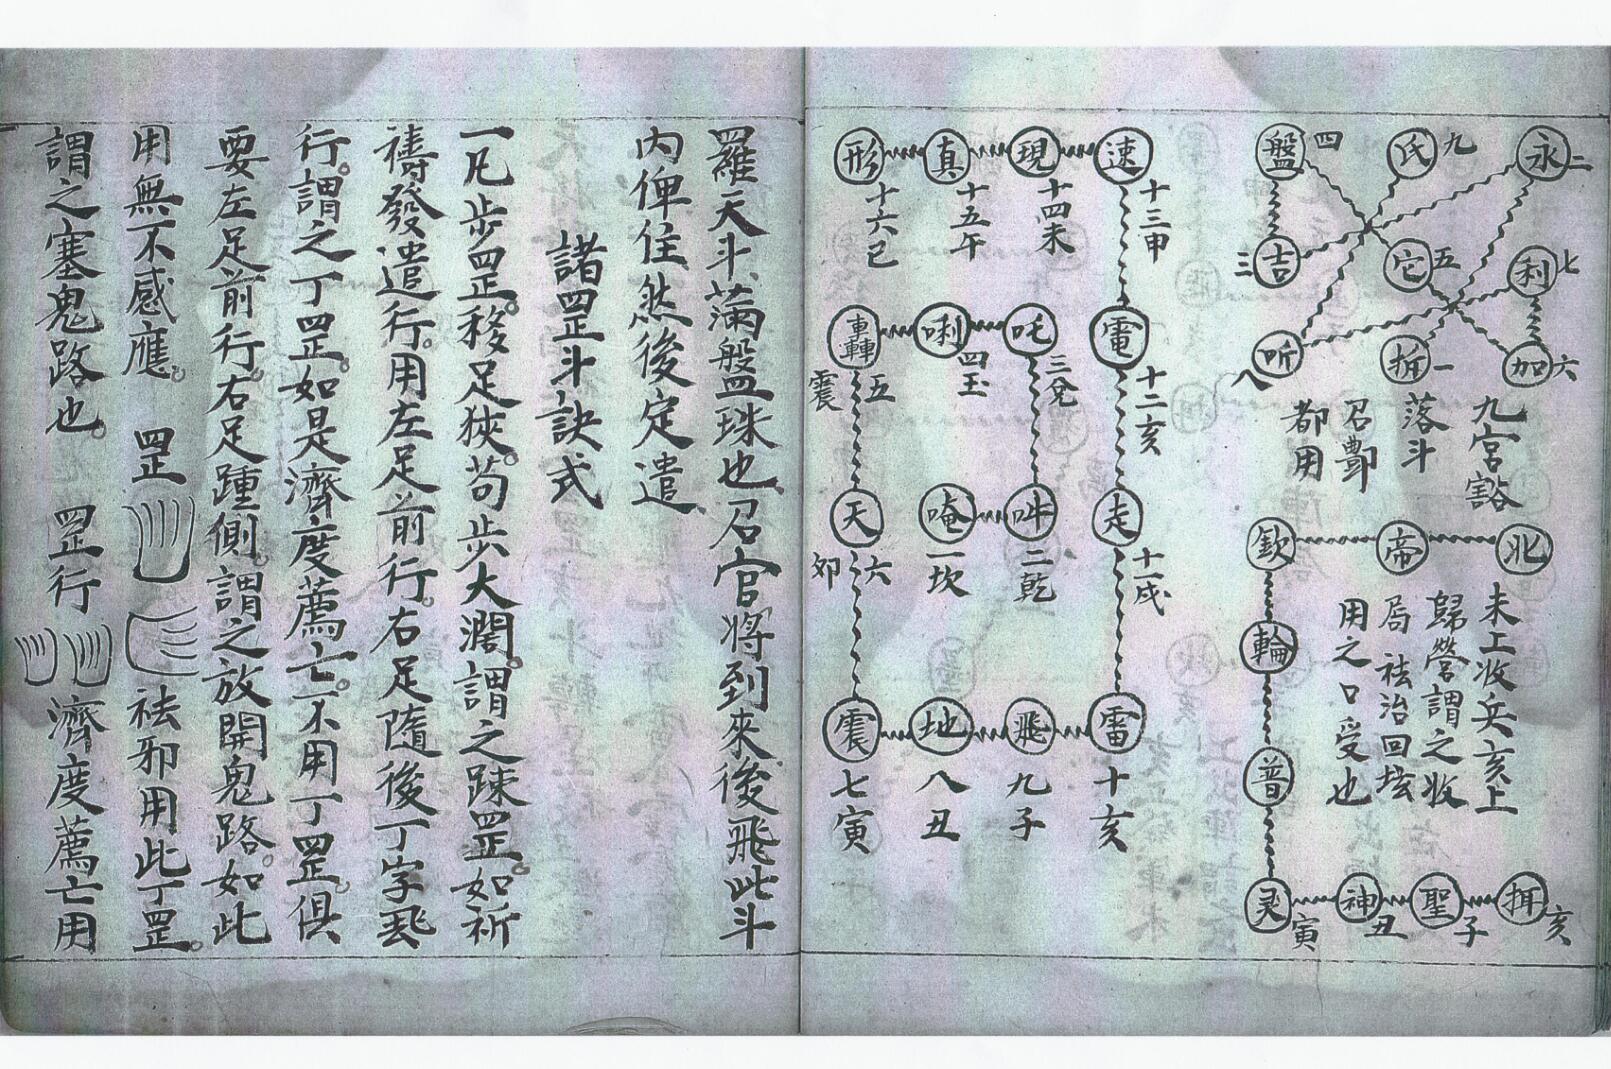 永二
氏九
盤四
利七
它五
吉三
加六
折一
听八
九宮豁
落斗
召酆
都用
北
帝
欽
輪
普
灵寅
神丑
聖子
揖亥
未上收兵亥上
歸營謂之收
局 祛治回垓
用之口受也
速十三申
現十四未
真十五午
形十六巳
電十二亥
吒三兌
唎四玉
轟五震
走十一戌
吽二乾
唵一坎
天六卯
雷十亥
飛九子
地八丑
震七寅
羅天斗。滿盤珠也。召官將到來後飛此斗
內俾住然後定遣
諸罡斗訣式
一凡步罡。移足狹。苟步大濶。謂之踈罡。如祈
禱發遣行。用左足前行。右足隨後丁字飛
行。謂之丁罡。如是濟度薦亡。不用丁罡。俱
要左足前行。右足踵側。謂之放開鬼路。如此
用無不感應。罡 祛邪用此丁罡。
謂之塞鬼路也。罡行 濟度薦亡用